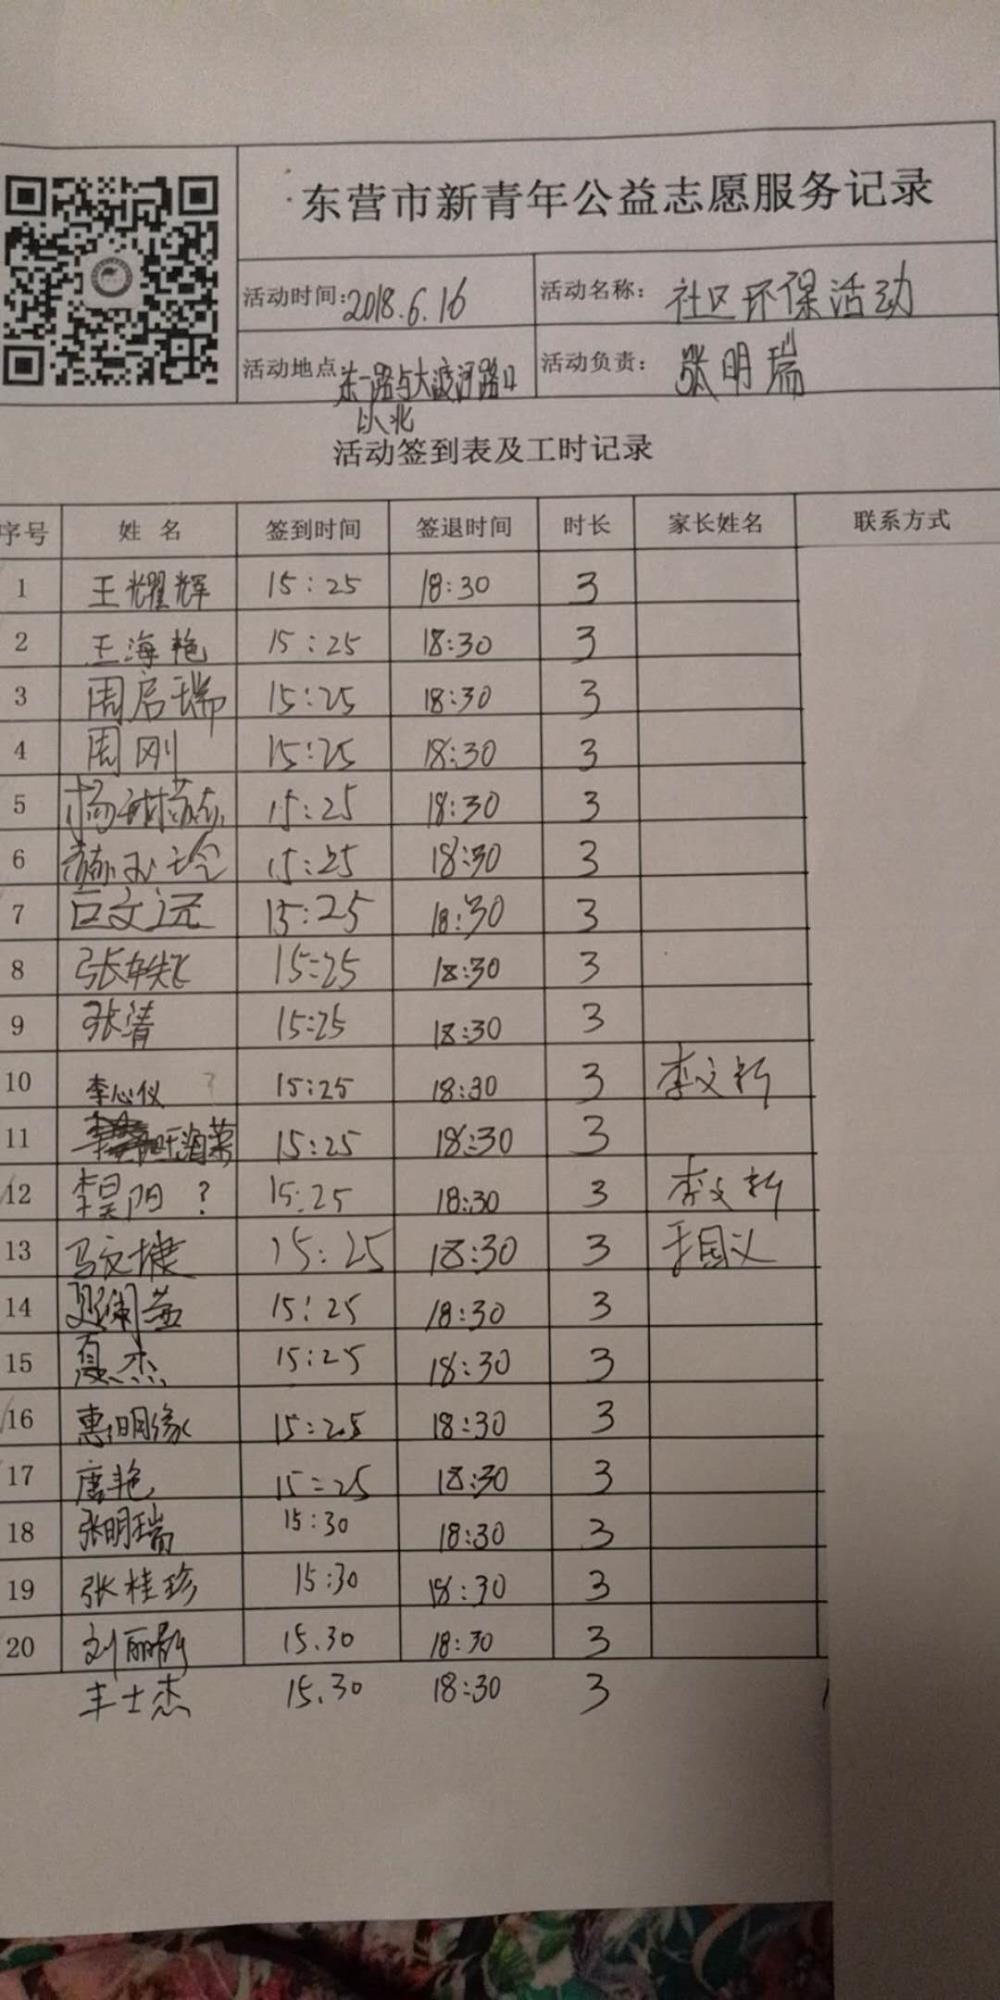 东营市新青年公益志愿服务记录
活动时间:2018.6.16 活动名称: 社区环保活动
活动地点 东一路与大渡河路口 活动负责: 张明瑞
以北
活动签到表及工时记录
序号 姓名 签到时间 签退时间 时长 家长姓名 联系方式
1 王耀辉 15:25 18:30 3
2 王海艳 15:25 18:30 3
3 周启瑞 15:25 18:30 3
4 周刚 15:25 18:30 3
5 15:25 18:30 3
6 15:25 18:30 3
7 巨文远 15:25 18:30 3
8 张轶飞 15:25 18:30 3
9 张清 15:25 18:30 3
10 李心仪 ? 15:25 18:30 3 李文新
11 15:25 18:30 3
12 李昊阳 ? 15:25 18:30 3 李文新
13 马文捷 15:25 18:30 3 于国义
14 15:25 18:30 3
15 夏杰 15:25 18:30 3
16 惠明缘 15:25 18:30 3
17 唐艳 15:25 18:30 3
18 张明瑞 15:30 18:30 3
19 张桂珍 15:30 18:30 3
20 刘丽 15.30 18:30 3
丰士杰 15.30 18:30 3